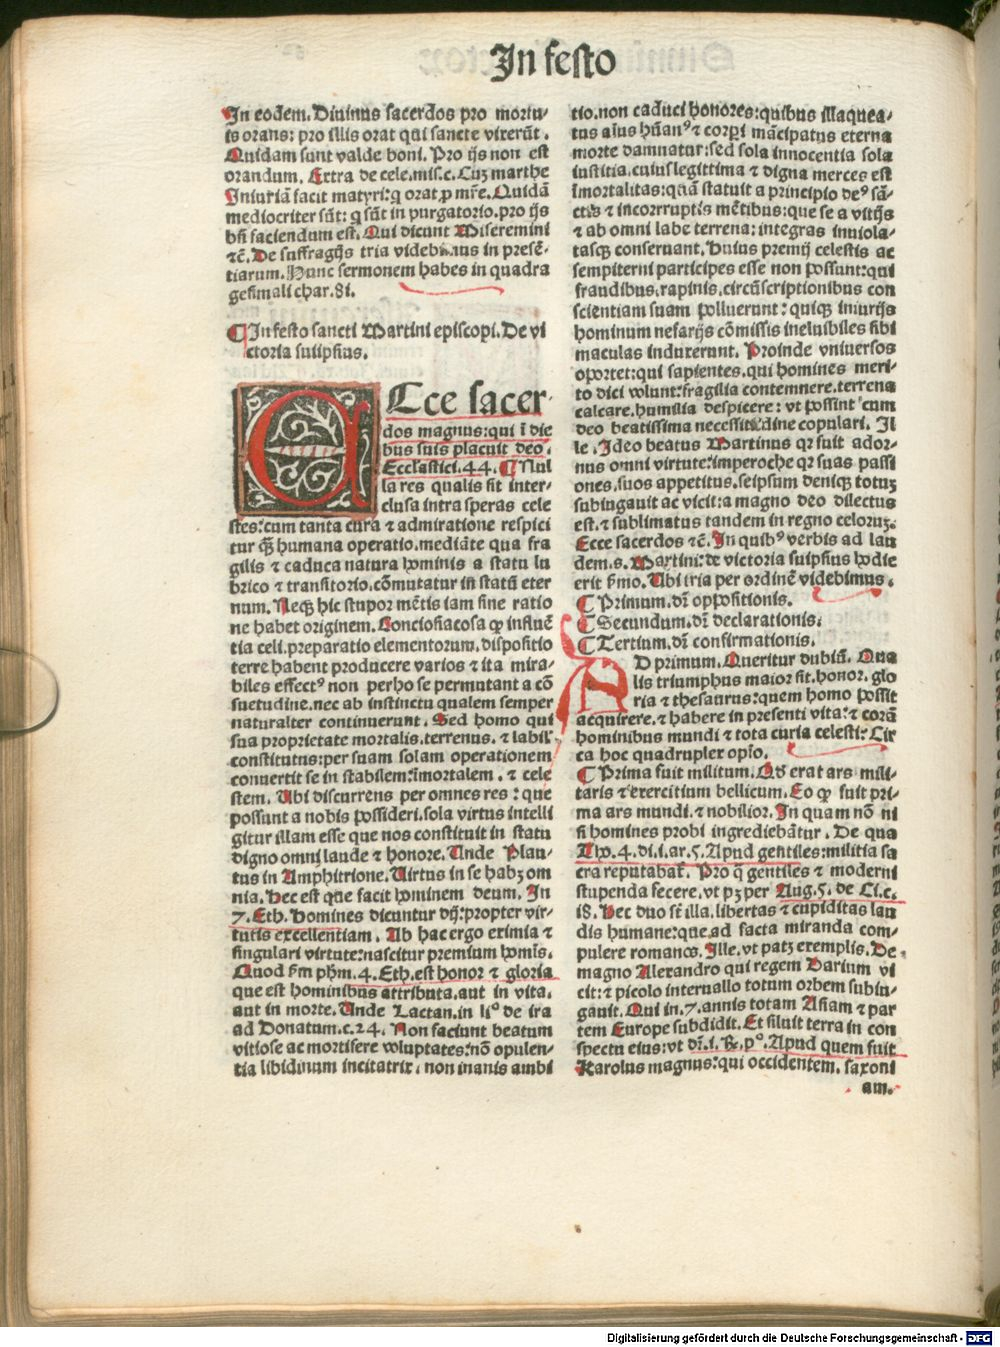 In festo
In eodem. Diuinus sacerdos pro mortu-
is orans: pro illis orat qui sancte vixerūt.
Quidam sunt valde boni. Pro ijs non est
orandum. Extra de cele. mis. c. Cuꝫ marthe
Iniuriā facit matyri: q̄ orat ꝓ mr̄e. Quidā
mediocriter sūt: q̄ sūt in purgatorio. pro ijs
bn̄ faciendum est. Qui dicunt Miseremini
⁊c̄. De suffragijs tria videbimus in presē-
tiarum. Hunc sermonem habes in quadra
gesimali char. 81.
¶ In festo sancti Martini episcopi. De vi
ctoria suiipsius.
Ecce sacer-
dos magnus: qui ī die
bus suis placuit deo.
Ecclastici. 44. ¶ Nul
la res qualis sit inter-
clusa intra speras cele
stes: cum tanta cura ⁊ admiratione respici
tur qȝ humana operatio. mediāte qua fra
gilis ⁊ caduca natura hominis a statu lu
brico ⁊ transitorio. cōmutatur in statū eter
num. Neqȝ hic stupor mētis iam sine ratio
ne habet originem. Concioſiacosa ꝙ influē
tia celi. preparatio elementorum. dispositio
terre habent producere varios ⁊ ita mira-
biles effectꝰ non perho se permutant a cō
suetudine. nec ab instinctu qualem semper
naturalter continuerunt. Sed homo qui
sua proprietate mortalis. terrenus. ⁊ labil'
constitutus: per suam solam operationem
conuertit se in stabilem: īmortalem. ⁊ cele
stem. Ubi discurrens per omnes res: que
possunt a nobis possideri. sola virtus intelli
gitur illam esse que nos constituit in statu
digno omni laude ⁊ honore. Unde Plau-
tus in Amphitrione. Uirtus in se habȝ om
nia. Hec est que facit hominem deum. In
7. Eth. Homines dicuntur dij: propter vir-
tutis excellentiam. Ab hac ergo eximia ⁊
singulari virtute: nascitur premium homīs.
Quod s̄m ph̄m. 4. Eth. est honor ⁊ gloria
que est hominibus attributa. aut in vita.
aut in morte. Unde Lactan. in liº de ira
ad Donatum. c. 24. Non faciunt beatum
vitiose ac mortifere voluptates: nō opulen-
tia libidinum incitatrix. non inanis ambi
tio. non caduci honores: quibus illaquea-
tus aīus hūanꝰ ⁊ corpī mācipatus eterna
morte damnatur: sed sola innocentia sola
iustitia. cuius legittima ⁊ digna merces est
īmortalitas: quā statuit a principio deꝰ sā-
ctis ⁊ incorrruptis mētibus: que se a vitijs
⁊ ab omni labe terrena: integras inuiola-
tasqȝ conseruant. Huius premij celestis ac
sempiterni participes esse non possunt: qui
fraudibus. rapinis. circūscriptionibus con
scientiam suam polluerunt: quiqȝ iniurijs
hominum nefarijs cōmissis ineluibiles sibi
maculas induxerunt. Proinde vniuersos
oportet: qui sapientes. qui homines meri-
to dici volunt: fragilia contemnere. terrena
calcare. humilia despicere: vt possint cum
deo beatissima necessitudine copulari. Il
le. Ideo beatus Martinus qꝛ fuit ador-
nus omni virtute: imperoche qꝛ suas passi
ones. suos appetitus. seipsum deniqȝ totuꝫ
subingauit ac vicit: a magno deo dilectus
est. ⁊ sublimatus tandem in regno celoruꝫ.
Ecce sacerdos ⁊c̄. In quibꝰ verbis ad lau
dem. s. Martini: de victoria suipsius hodie
erit s̄mo. Ubi tria per ordinē videbimus.
¶ Primum. dr̄ oppositionis.
¶ Secundum. dr̄ declarationis.
¶ Tertium. dr̄ confirmationis.
AD primum. Queritur dubiū. Qua
lis triumphus maior sit. honor. glo
ria ⁊ thesaurus: quem homo possit
acquirere. ⁊ habere in presenti vita: ⁊ corā
hominibus mundi ⁊ tota curia celesti: Cir
ca hoc quadruplex opīo.
¶ Prima fuit militum. Qđ erat ars mili-
taris ⁊ exercitium bellicum. Eo ꝙ fuit pri-
ma ars mundi. ⁊ nobilior. In quam nō ni
si homines probi ingrediebātur. De qua
Tho. 4. di. i. ar. 5. Apud gentiles: militia sa
cra reputabat̄. Pro q̄ gentiles ⁊ moderni
stupenda fecere. vt pȝ per Aug. 5. de Ci. c.
18. Hec duo sūt illa. libertas ⁊ cupiditas lau
dis humane: que ad facta miranda com-
pulere romanos. Ille. vt patȝ exemplis. De
magno Alexandro qui regem Darium vi
cit: ⁊ picolo interuallo totum orbem subiu-
gauit. Qui in. 7. annis totam Asiam ⁊ par
tem Europe subdidit. Et siluit terra in con
spectu eius: vt dr̄. i. Mac. pº. Apud quem fuit
Karolus magnus: qui occidentem. saxoni
am.
Digitalisierung gefördert durch die Deutsche Forschungsgemeinschaft - DFG